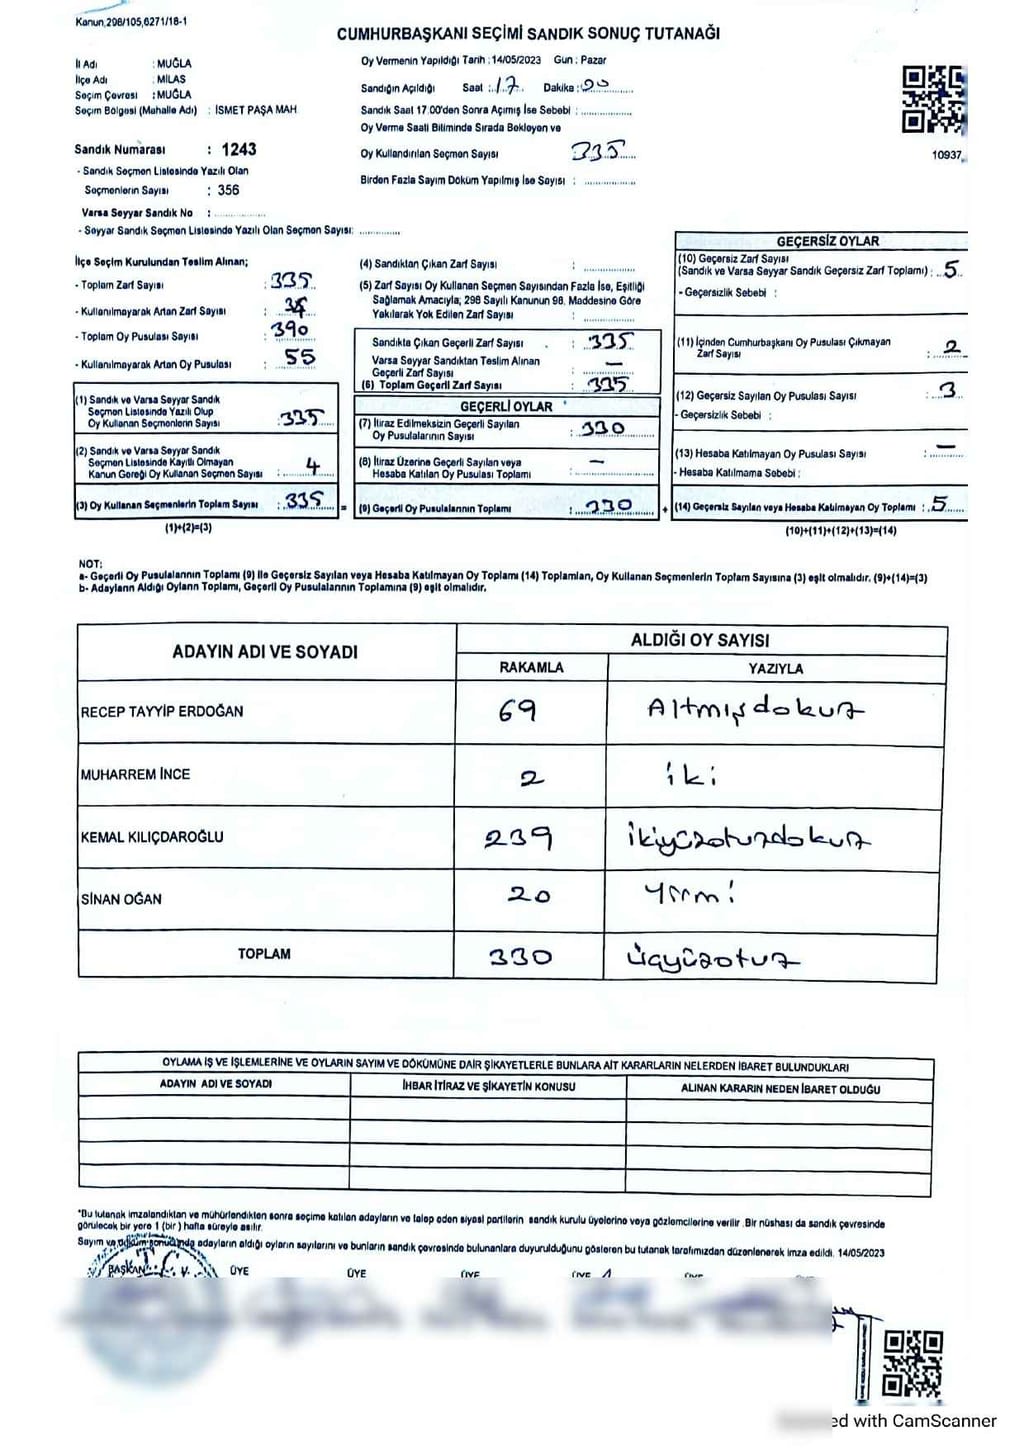 Kanun,298/105,6271/18-1
CUMHURBAŞKANI SEÇİMİ SANDIK SONUÇ TUTANAĞI
İl Adı : MUĞLA
İlçe Adı : MİLAS
Seçim Çevresi : MUĞLA
Seçim Bölgesi (Mahalle Adı) : İSMET PAŞA MAH
Sandık Numarası : 1243
- Sandık Seçmen Listesinde Yazılı Olan
Seçmenlerin Sayısı : 356
Varsa Seyyar Sandık No :
- Seyyar Sandık Seçmen Listesinde Yazılı Olan Seçmen Sayısı:
Oy Vermenin Yapıldığı Tarih : 14/05/2023 Gün : Pazar
Sandığın Açıldığı Saat : 17 Dakika :
Sandık Saat 17.00'den Sonra Açımış İse Sebebi :
Oy Verme Saati Bitiminde Sırada Bekleyen ve
Oy Kullandırılan Seçmen Sayısı 335
Birden Fazla Sayım Döküm Yapılmış İse Sayısı :
10937
İlçe Seçim Kurulundan Teslim Alınan;
- Toplam Zarf Sayısı : 335
- Kullanılmayarak Artan Zarf Sayısı :
- Toplam Oy Pusulası Sayısı : 390
- Kullanılmayarak Artan Oy Pusulası : 55
(1) Sandık ve Varsa Seyyar Sandık
Seçmen Listesinde Yazılı Olup
Oy Kullanan Seçmenlerin Sayısı : 335
(2) Sandık ve Varsa Seyyar Sandık
Seçmen Listesinde Kayıtlı Olmayan
Kanun Gereği Oy Kullanan Seçmen Sayısı : 4
(3) Oy Kullanan Seçmenlerin Toplam Sayısı : 335 =
(1)+(2)=(3)
(4) Sandıktan Çıkan Zarf Sayısı :
(5) Zarf Sayısı Oy Kullanan Seçmen Sayısından Fazla İse, Eşitliği
Sağlamak Amacıyla; 298 Sayılı Kanunun 98. Maddesine Göre
Yakılarak Yok Edilen Zarf Sayısı :
Sandıkta Çıkan Geçerli Zarf Sayısı : 335
Varsa Seyyar Sandıktan Teslim Alınan
Geçerli Zarf Sayısı : —
(6) Toplam Geçerli Zarf Sayısı : 335
GEÇERLİ OYLAR
(7) İtiraz Edilmeksizin Geçerli Sayılan
Oy Pusulalarının Sayısı : 330
(8) İtiraz Üzerine Geçerli Sayılan veya
Hesaba Katılan Oy Pusulası Toplamı : —
(9) Geçerli Oy Pusulalarının Toplamı : 330 +
GEÇERSİZ OYLAR
(10) Geçersiz Zarf Sayısı
(Sandık ve Varsa Seyyar Sandık Geçersiz Zarf Toplamı) : 5
- Geçersizlik Sebebi :
(11) İçinden Cumhurbaşkanı Oy Pusulası Çıkmayan
Zarf Sayısı : 2
(12) Geçersiz Sayılan Oy Pusulası Sayısı : 3
- Geçersizlik Sebebi :
(13) Hesaba Katılmayan Oy Pusulası Sayısı : —
- Hesaba Katılmama Sebebi :
(14) Geçersiz Sayılan veya Hesaba Katılmayan Oy Toplamı : 5
(10)+(11)+(12)+(13)=(14)
NOT;
a- Geçerli Oy Pusulalarının Toplamı (9) İle Geçersiz Sayılan veya Hesaba Katılmayan Oy Toplamı (14) Toplamları, Oy Kullanan Seçmenlerin Toplam Sayısına (3) eşit olmalıdır. (9)+(14)=(3)
b- Adayların Aldığı Oyların Toplamı, Geçerli Oy Pusulalarının Toplamına (9) eşit olmalıdır.
ADAYIN ADI VE SOYADI ALDIĞI OY SAYISI
RAKAMLA YAZIYLA
RECEP TAYYİP ERDOĞAN 69 Altmışdokuz
MUHARREM İNCE 2 iki
KEMAL KILIÇDAROĞLU 239 ikiyüzotuzdokuz
SİNAN OĞAN 20 yirmi
TOPLAM 330 üçyüzotuz
OYLAMA İŞ VE İŞLEMLERİNE VE OYLARIN SAYIM VE DÖKÜMÜNE DAİR ŞİKAYETLERLE BUNLARA AİT KARARLARIN NELERDEN İBARET BULUNDUKLARI
ADAYIN ADI VE SOYADI İHBAR İTİRAZ VE ŞİKAYETİN KONUSU ALINAN KARARIN NEDEN İBARET OLDUĞU
*Bu tutanak imzalandıktan ve mühürlendikten sonra seçime katılan adayların ve talep eden siyasi partilerin sandık kurulu üyelerine veya gözlemcilerine verilir .Bir nüshası da sandık çevresinde
görülecek bir yere 1 (bir ) hafta süreyle asılır.
Sayım ve döküm sonucunda adayların aldığı oyların sayılarını ve bunların sandık çevresinde bulunanlara duyurulduğunu gösteren bu tutanak tarafımızdan düzenlenerek imza edildi. 14/05/2023
BAŞKAN ÜYE ÜYE ÜYE ÜYE ÜYE
ed with CamScanner